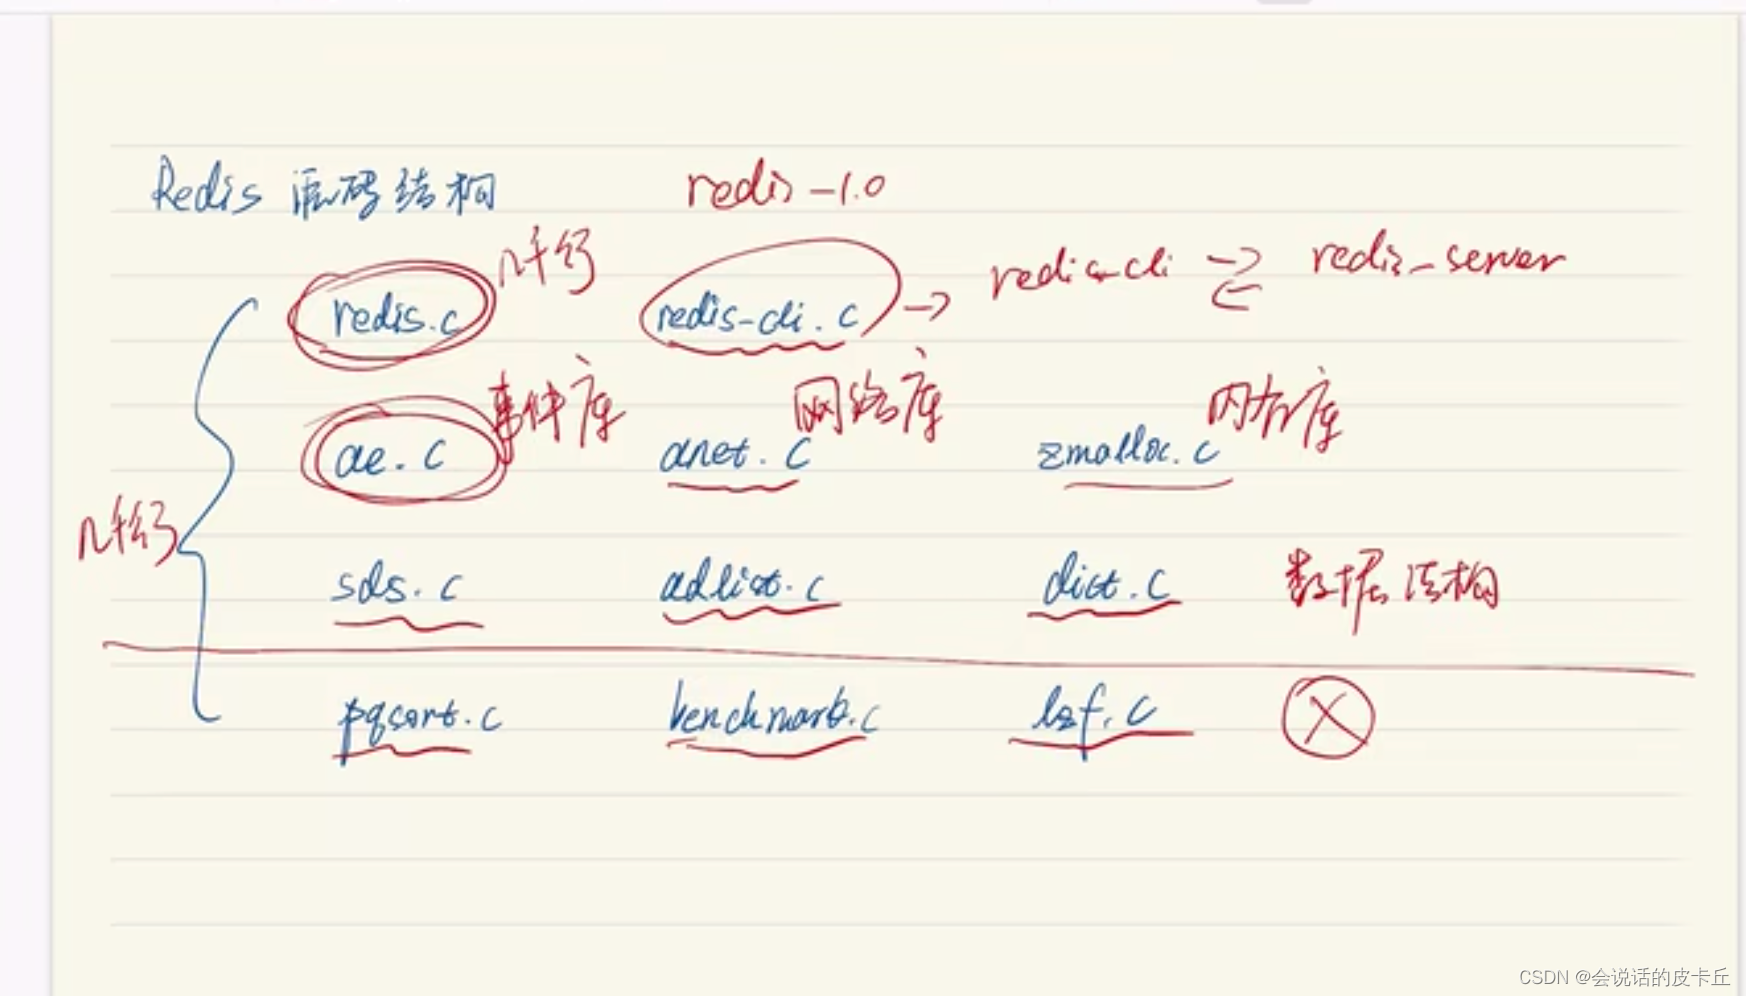 Redis 源码结构 redis-1.0
redis.c 几千行 redis-cli.c → redis-cli ⇄ redis-server
ae.c 事件库 anet.c 网络库 zmalloc.c 内存库
几千行
sds.c adlist.c dict.c 数据结构
pqsort.c benchmark.c lzf.c ⓧ
CSDN @会说话的皮卡丘